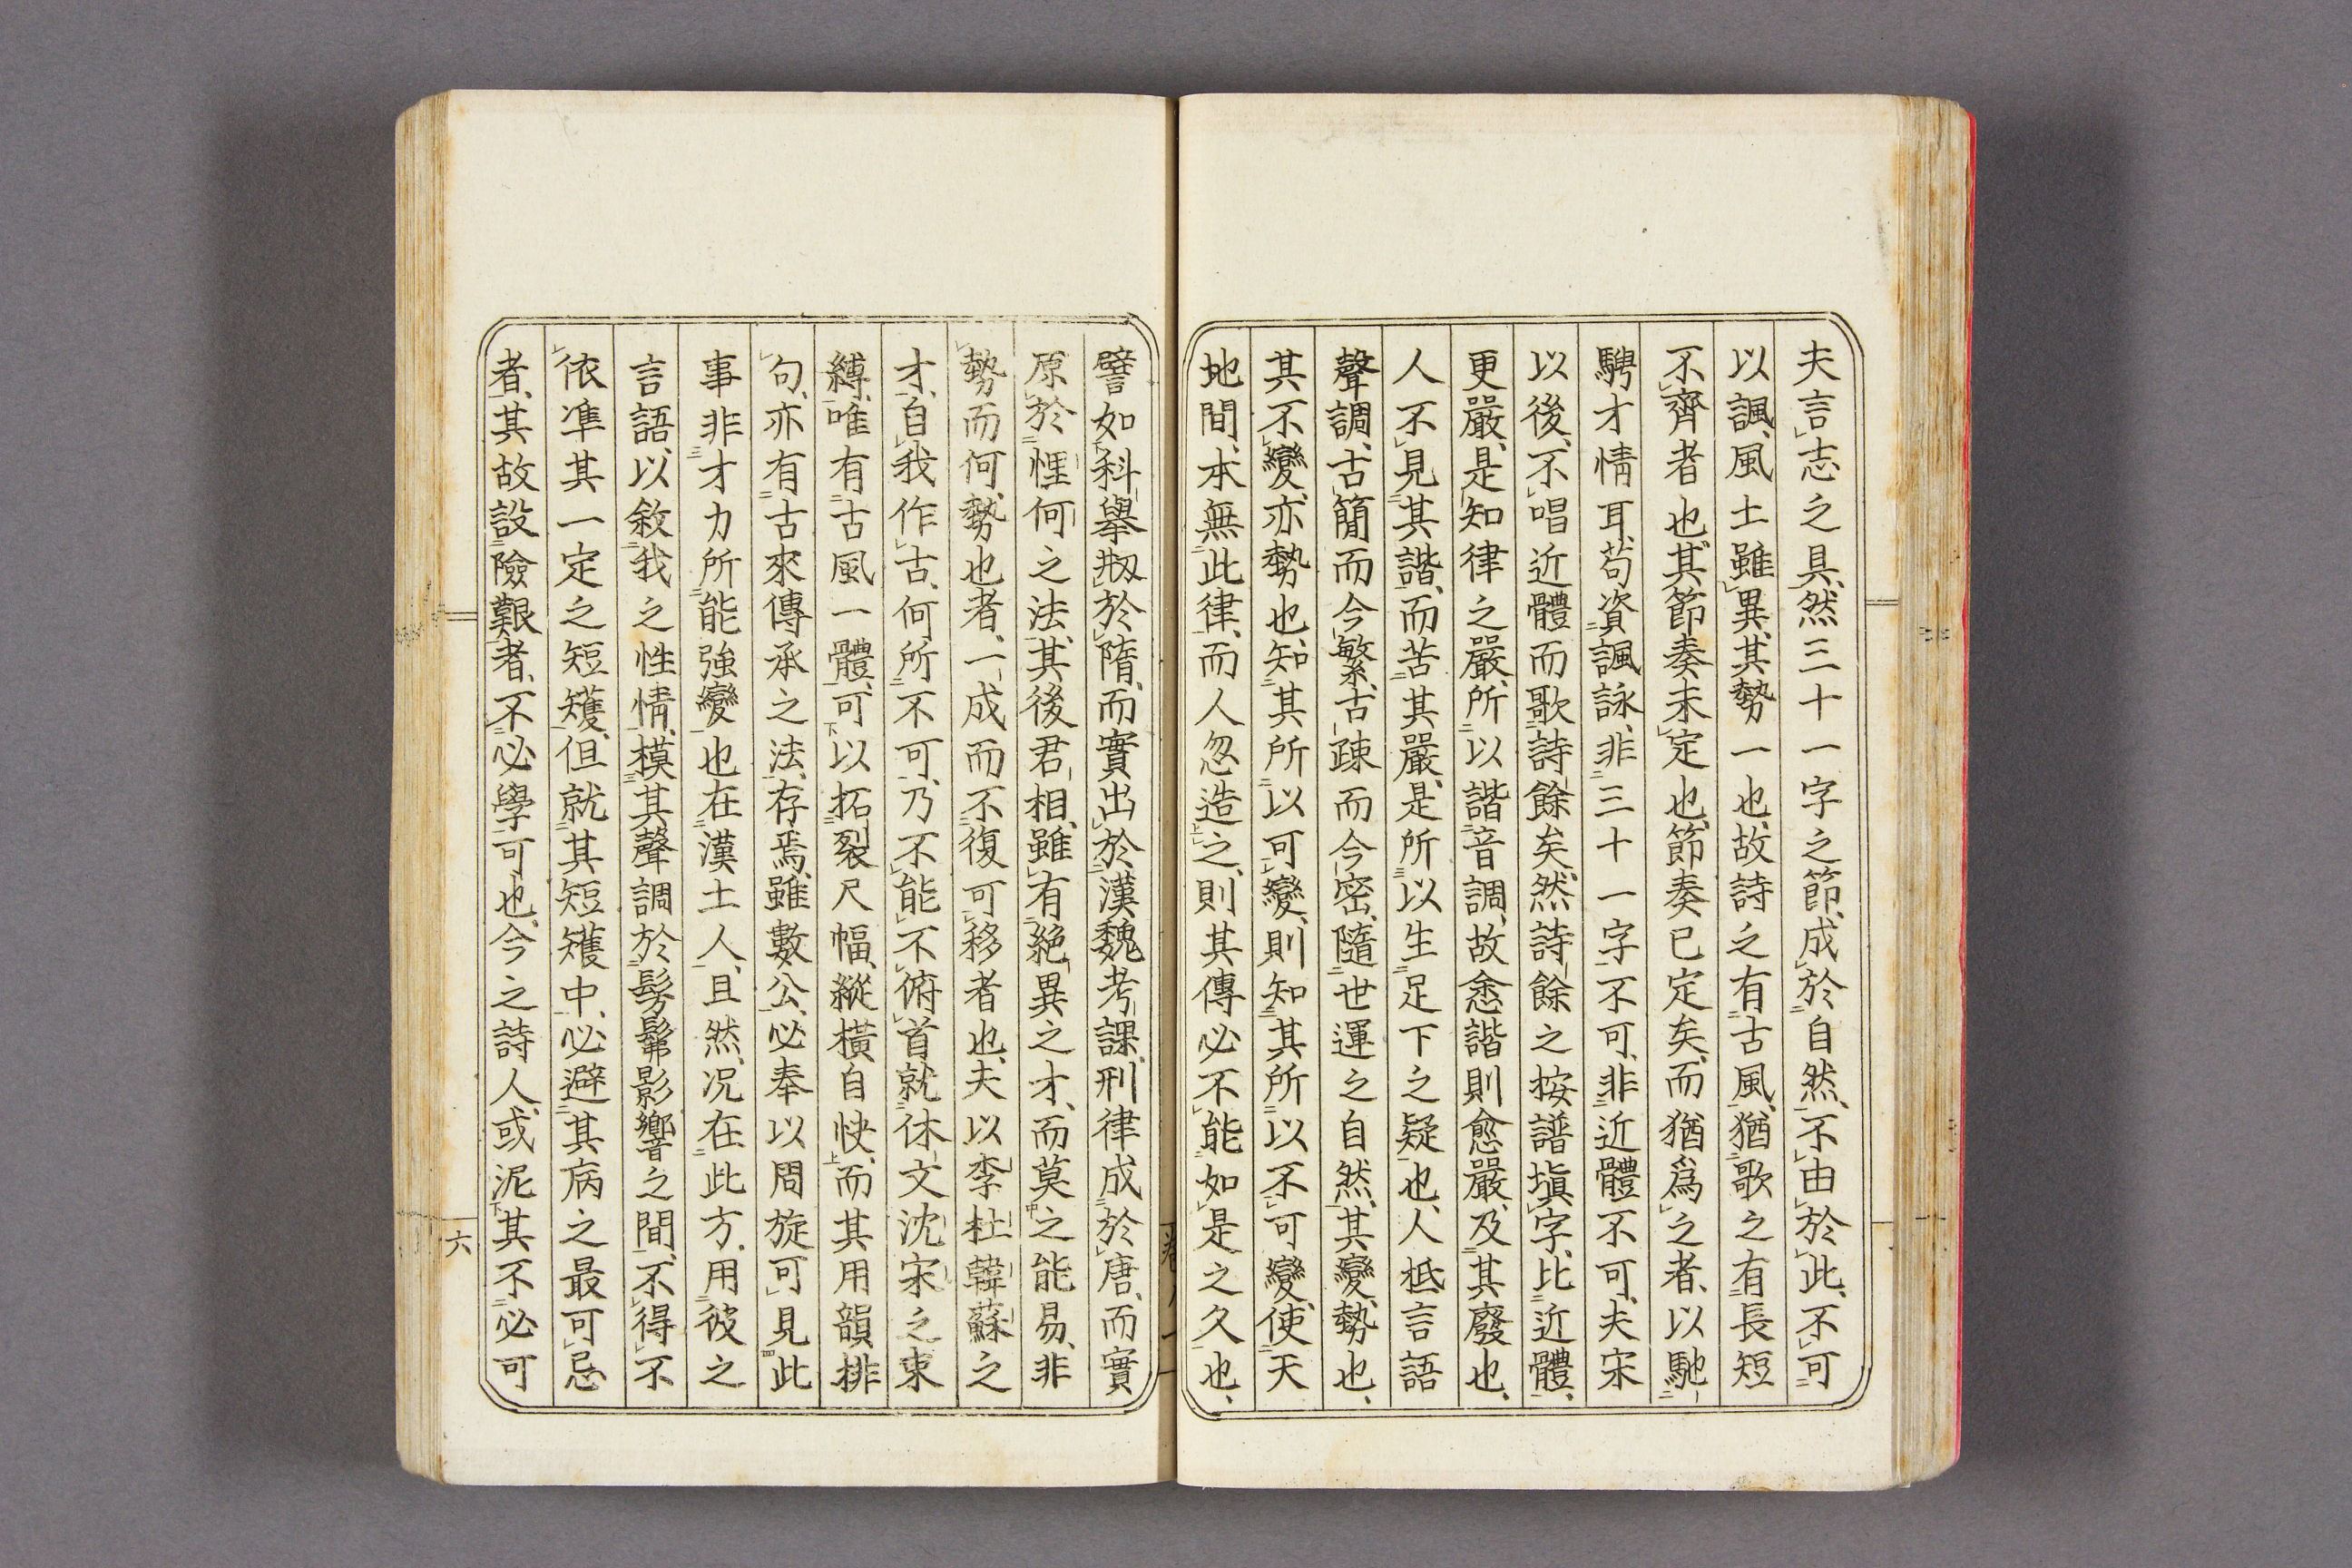 夫言志之具、然三十一字之節、成於自然、不由於此、不可
以諷、風土雖異、其勢一也、故詩之有古風、猶歌之有長短
不齊者也、其節奏未定也、節奏已定矣、而猶爲之者、以馳
騁才情耳、苟資諷詠、非三十一字不可、非近體不可、夫宋
以後、不唱近體而歌詩餘矣、然詩餘之按譜塡字、比近體、
更嚴、是知律之嚴、所以諧音調、故愈諧則愈嚴、及其廢也、
人不見其諧、而苦其嚴、是所以生足下之疑也、人柢言語
聲調、古簡而今繁、古疎而今密、隨世運之自然、其變、勢也、
其不變、亦勢也、知其所以可變、則知其所以不可變、使天
地間、本無此律、而人忽造之、則其傳必不能如是之久也、
譬如科擧、剏於隋、而實出於漢魏考課、刑律成於唐、而實
原於悝何之法、其後君相、雖有絶異之才、而莫之能易、非
勢而何、勢也者、一成而不復可移者也、夫以李杜韓蘇之
才、自我作古、何所不可、乃不能不俯首就休文沈宋之束
縛、唯有古風一體、可以拓裂尺幅、縱橫自快、而其用韻排
句、亦有古來傳承之法存焉、雖數公、必奉以周旋、可見此
事非才力所能強變也、在漢土人、且然、况在此方、用彼之
言語、以敘我之性情、模其聲調於髣髴影響之間、不得不
依準其一定之短矱、但就其短矱中、必避其病之最可忌
者、其故設險艱者、不必學可也、今之詩人、或泥其不必可
六